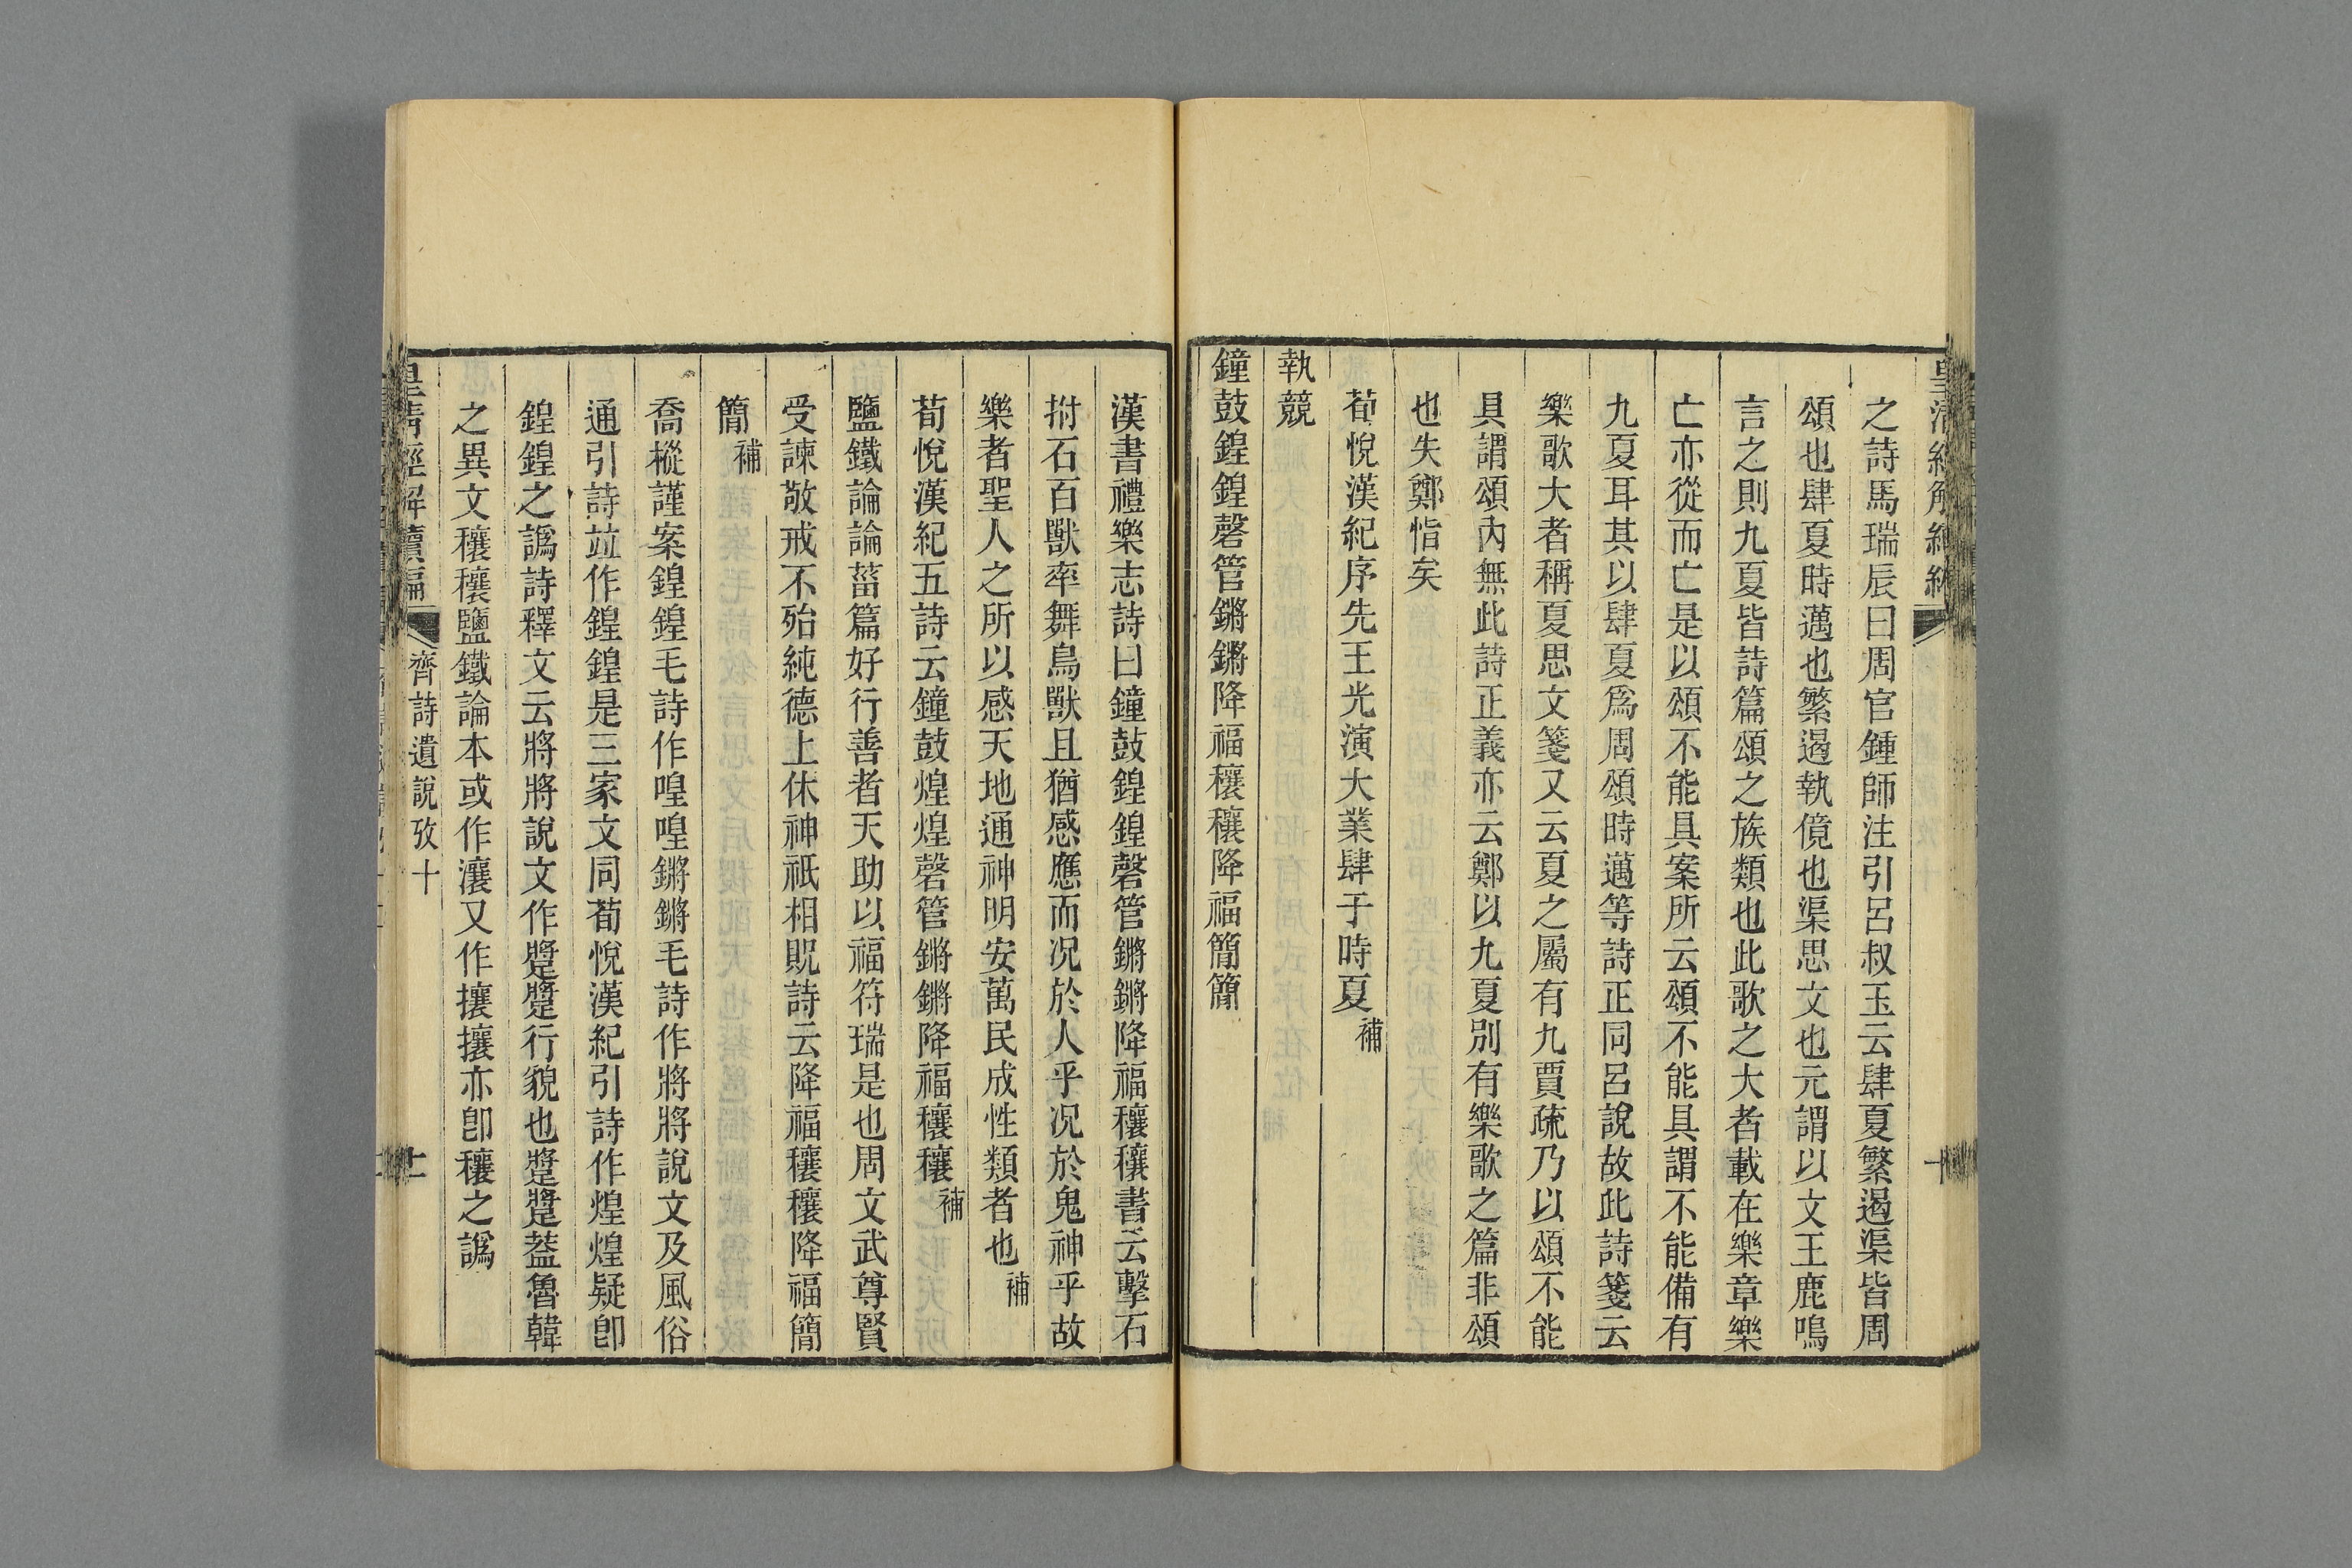 之詩馬瑞辰曰周官鍾師注引呂叔玉云肆夏繁遏渠皆周
頌也肆夏時邁也繁遏執儓也渠思文也元謂以文王鹿鳴
言之則九夏皆詩篇頌之族類也此歌之大者載在樂章樂
亡亦從而亡是以頌不能具案所云頌不能具謂不能備有
九夏耳其以肆夏爲周頌時邁等詩正同呂說故此詩箋云
樂歌大者稱夏思文箋又云夏之屬有九賈疏乃以頌不能
具謂頌內無此詩正義亦云鄭以九夏別有樂歌之篇非頌
也失鄭恉矣
荀悅漢紀序先王光演大業肆于時夏補
執競
鐘鼓鍠鍠磬管鏘鏘降福穰穰降福簡簡
漢書禮樂志詩曰鐘鼓鍠鍠磬管鏘鏘降福穰穰書云擊石
拊石百獸率舞鳥獸且猶感應而況於人乎況於鬼神乎故
樂者聖人之所以感天地通神明安萬民成性類者也補
荀悅漢紀五詩云鐘鼓煌煌磬管鏘鏘降福穰穰補
鹽鐵論論菑篇好行善者天助以福符瑞是也周文武尊賢
受諫敬戒不殆純德上休神祇相貺詩云降福穰穰降福簡
簡補
喬樅謹案鍠鍠毛詩作喤喤鏘鏘毛詩作將將說文及風俗
通引詩竝作鍠鍠是三家文同荀悅漢紀引詩作煌煌疑卽
鍠鍠之譌詩釋文云將將說文作蹡蹡行貌也蹡蹡葢魯韓
之異文穰穰鹽鐵論本或作瀼又作攘攘亦卽穰之譌
皇清經解續編
齊詩遺說攷十